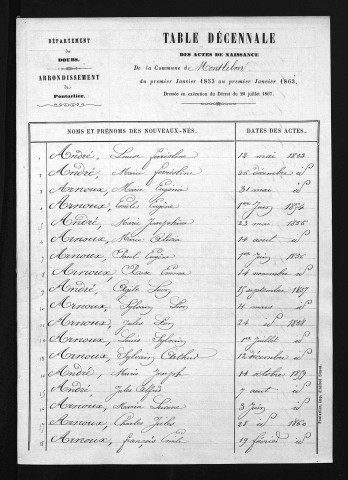 DÉPARTEMENT
du
DOUBS.
ARRONDISSEMENT
de
Pontarlier.
TABLE DÉCENNALE
DES ACTES DE NAISSANCE
De la Commune de Montlebon
du premier Janvier 1853 au premier Janvier 1863,
Dressée en exécution du Décret du 20 juillet 1807.
NOMS ET PRÉNOMS DES NOUVEAUX-NÉS. DATES DES ACTES.
1 André, Louise 12 mai 1853
2 André, Marie 26 décembre id
3 Arnoux, Marie Eugénie 31 mai id
4 Arnoux, Emile Eugène 1er Juin 1854
5 André, Marie Joséphine 23 mai 1855
6 Arnoux, Marie 14 avril id
7 Arnoux, Paul Eugène 1er Juin 1856
8 Arnoux, Rose 14 novembre id
9 André, Léon 15 septembre 1857
10 Arnoux, Sylvain Léon 4 mars id
11 Arnoux, Jules Léon 24 id 1858
12 Arnoux, Louis Sylvain 1er Juillet id
13 Arnoux, Sylvain Arthur 12 décembre id
14 André, Marie Joseph 14 octobre 1859
15 André, Jules Alfred 7 août id
16 Arnoux, Marie 3 Juin id
17 Arnoux, Charles Jules 28 id 1860
18 Arnoux, françois Emile 19 février id